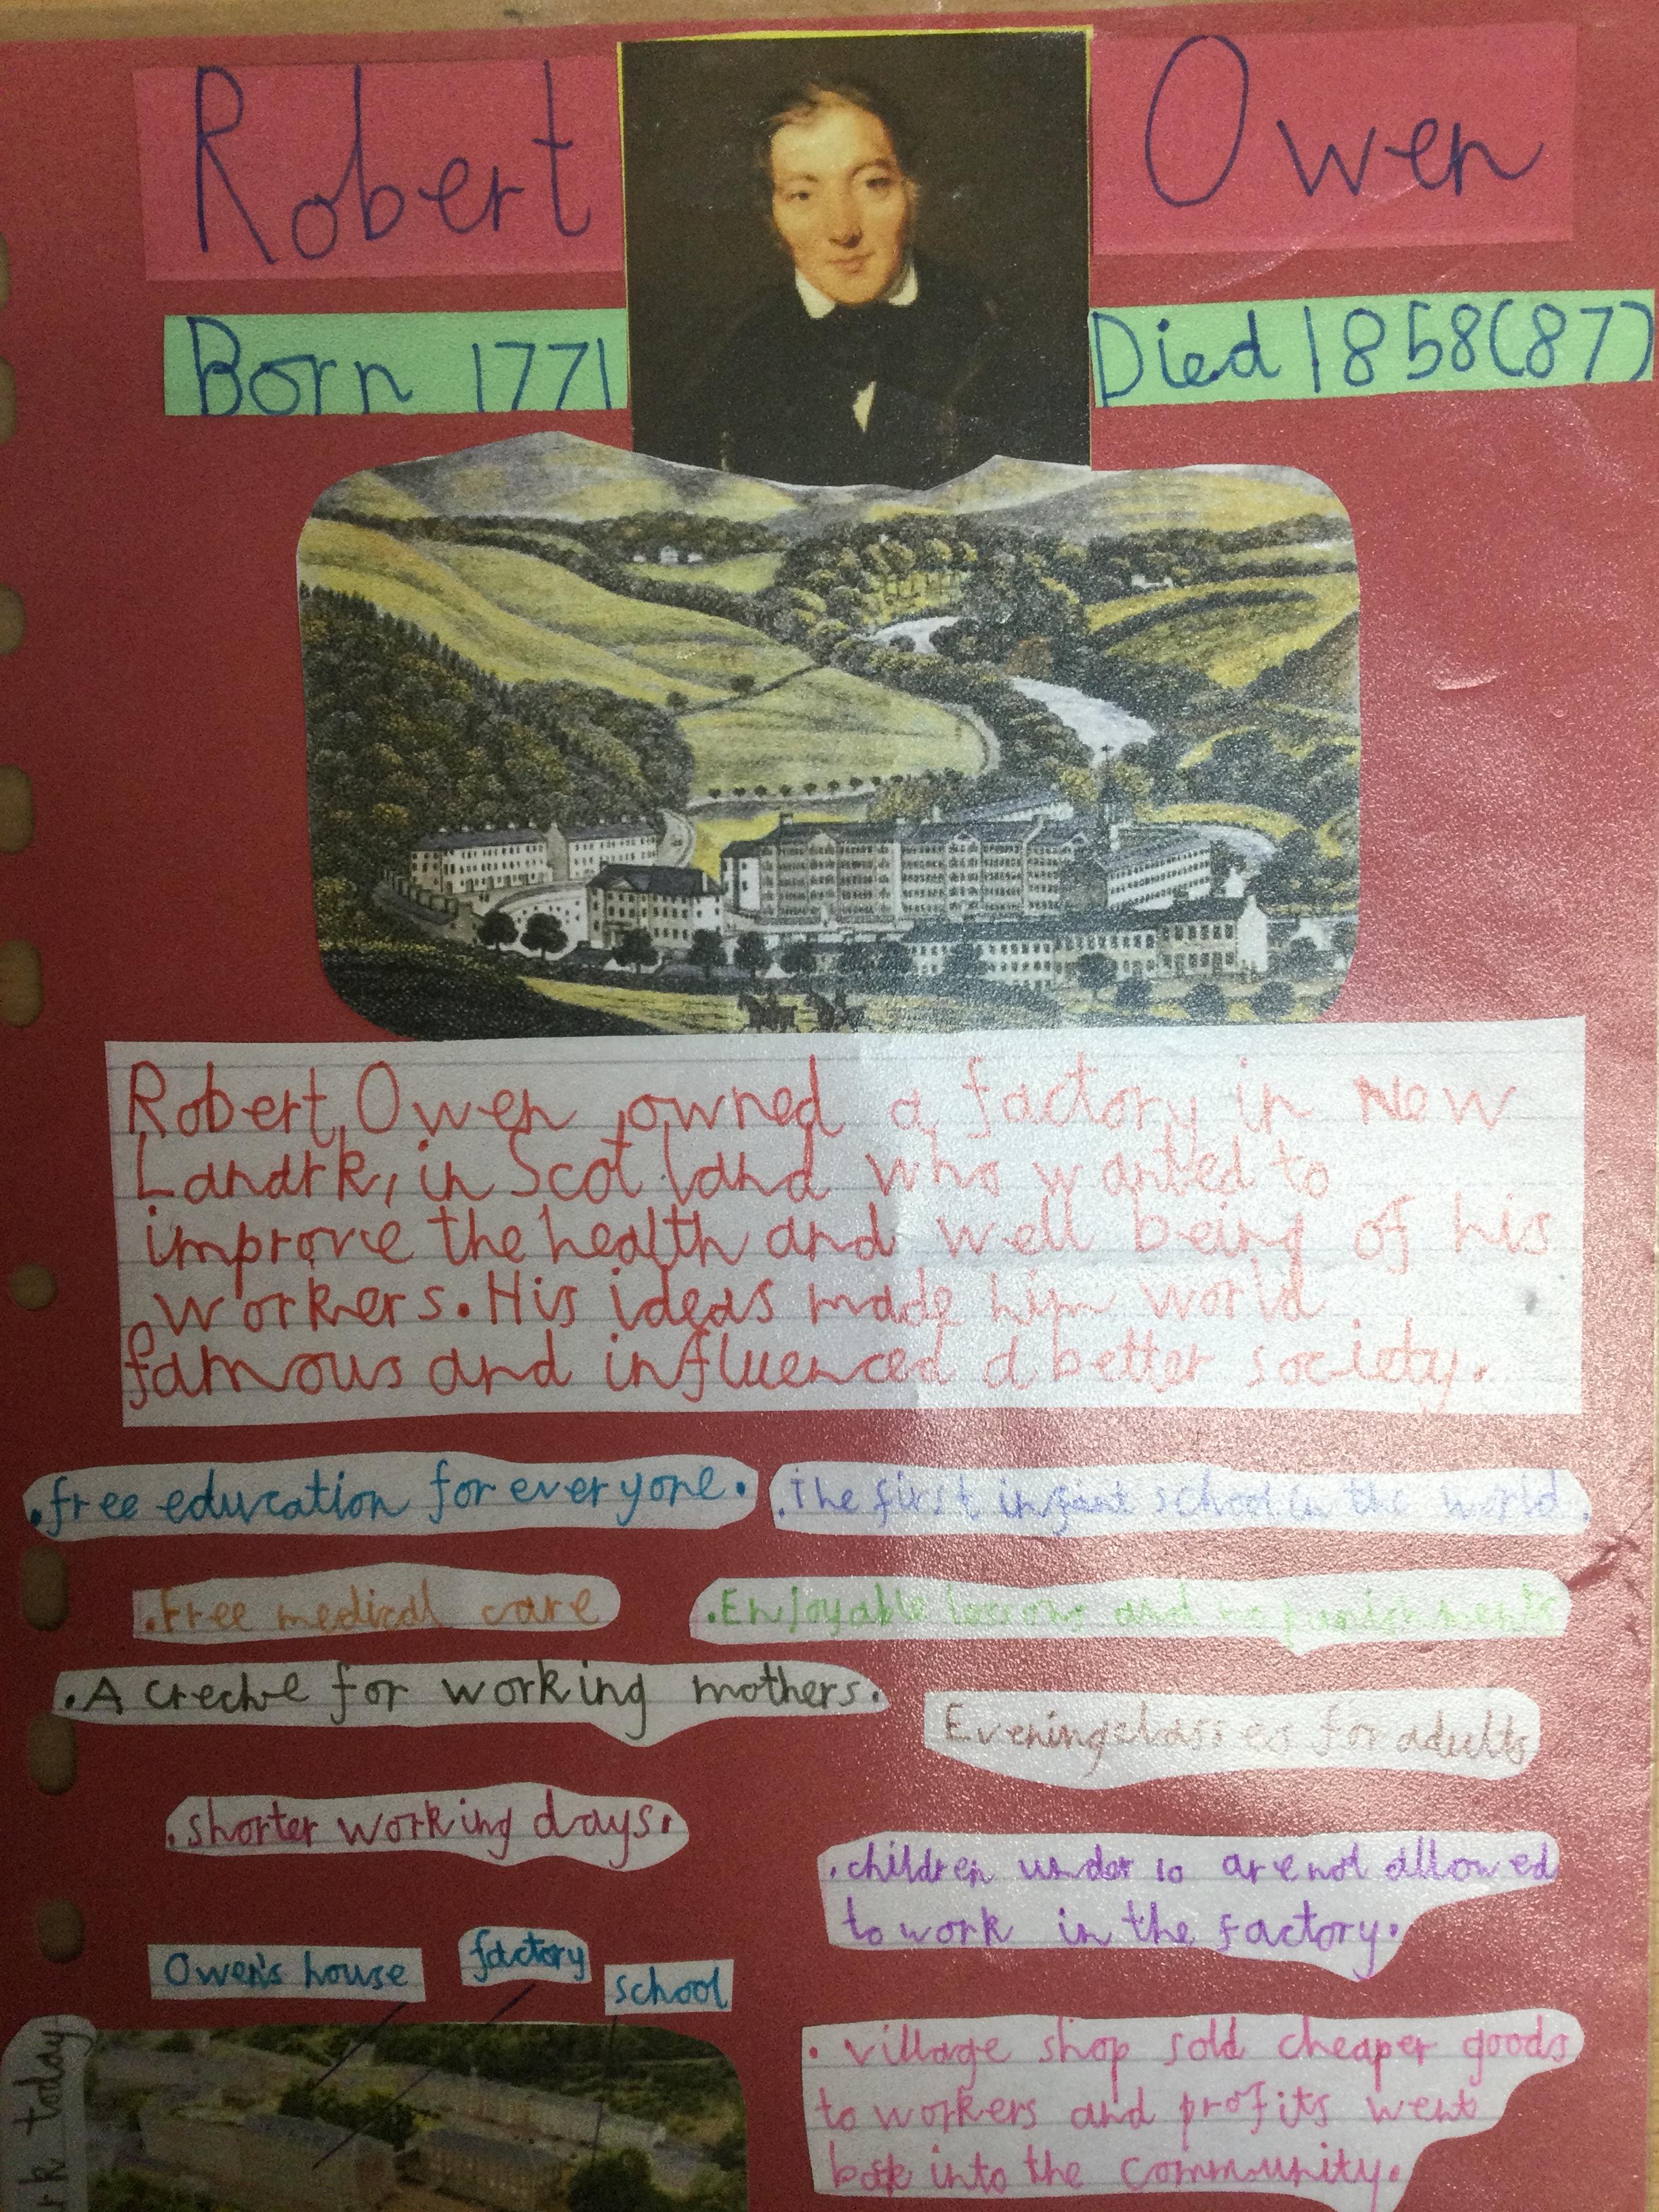 Robert Owen
Born 1771
Died 1858(87)
Robert Owen owned a factory in New
Lanark, in Scotland who wanted to
improve the health and well being of his
workers. His ideas made him world
famous and influenced a better society.
.free education for everyone.
.The first infant school in the world.
.Free medical care
.Enjoyable lessons and no punishments
.A creche for working mothers.
Evening classes for adults
.shorter working days.
.children under 10 are not allowed
to work in the factory.
Owen's house
factory
school
. village shop sold cheaper goods
to workers and profits went
back into the community.
rk today